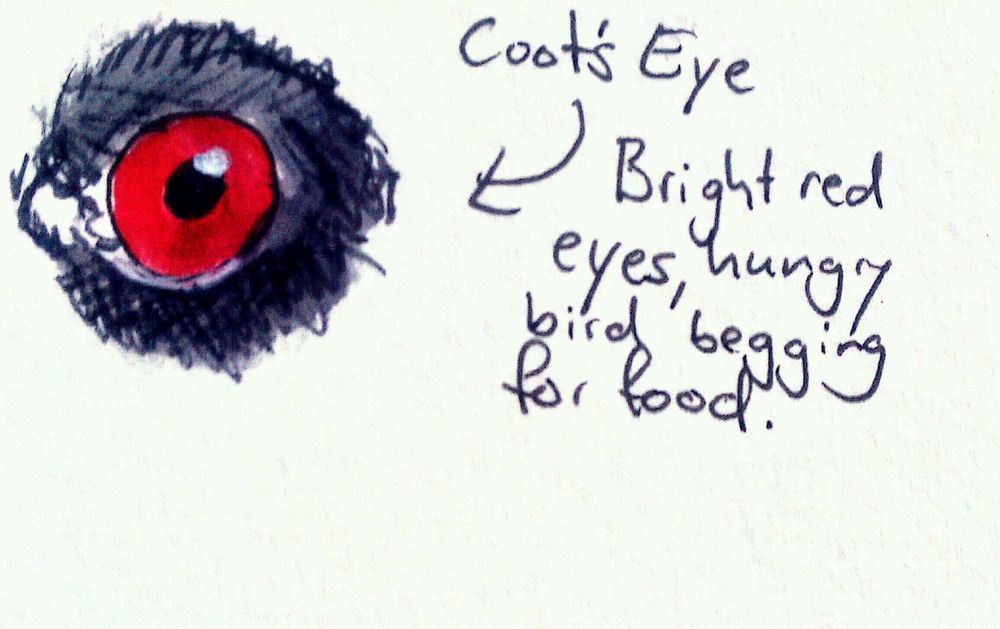 Coot's Eye
Bright red
eyes, hungry
bird begging
for food.